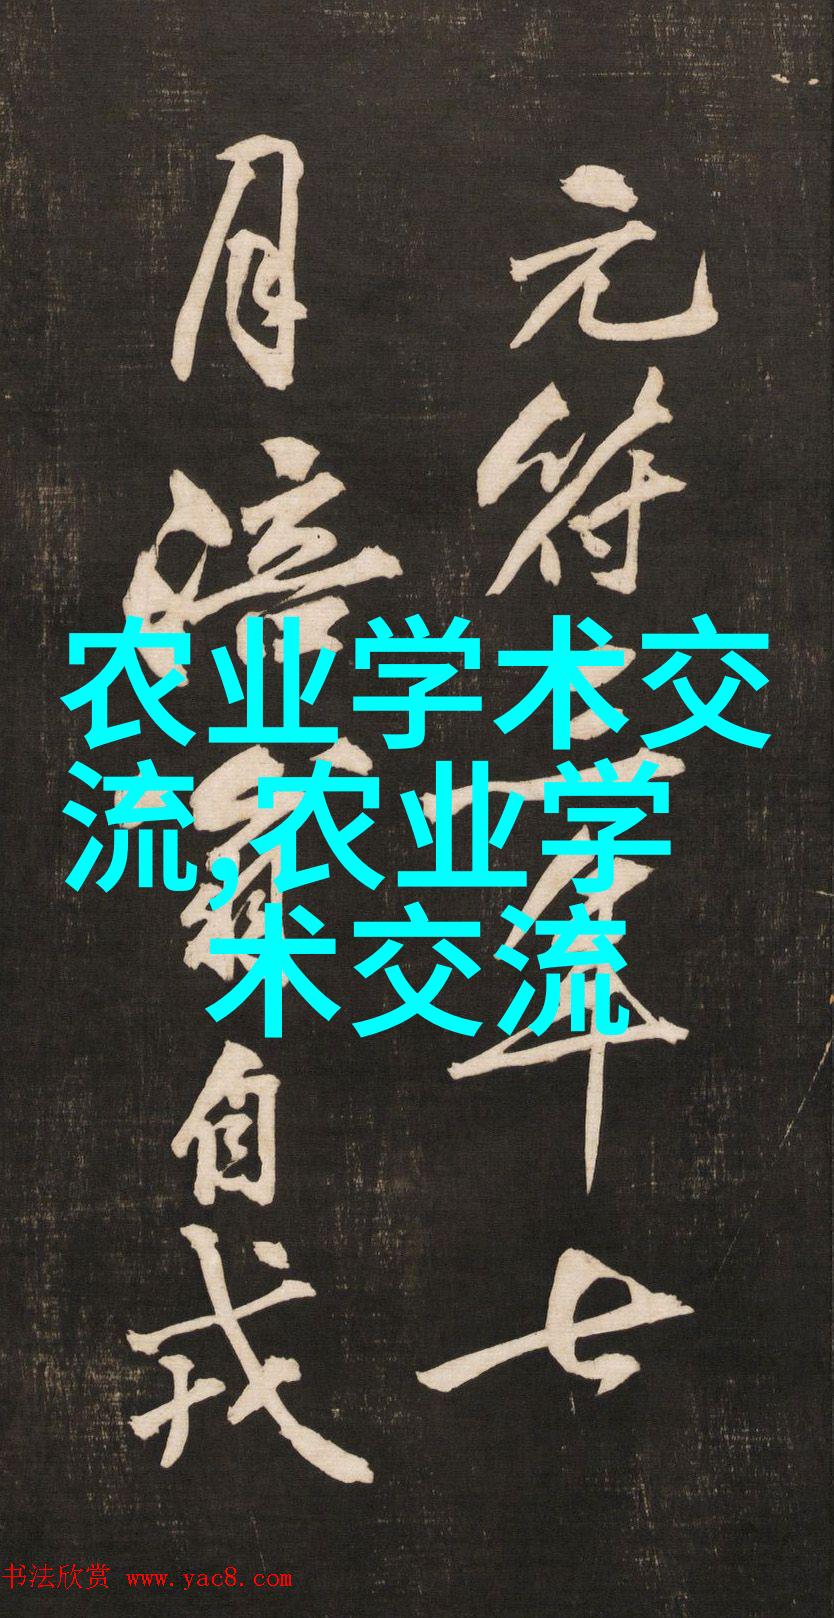 元符三年七
月涪翁自戎
农业学术交
流,农业学
术交流
书法欣赏 www.yac8.com